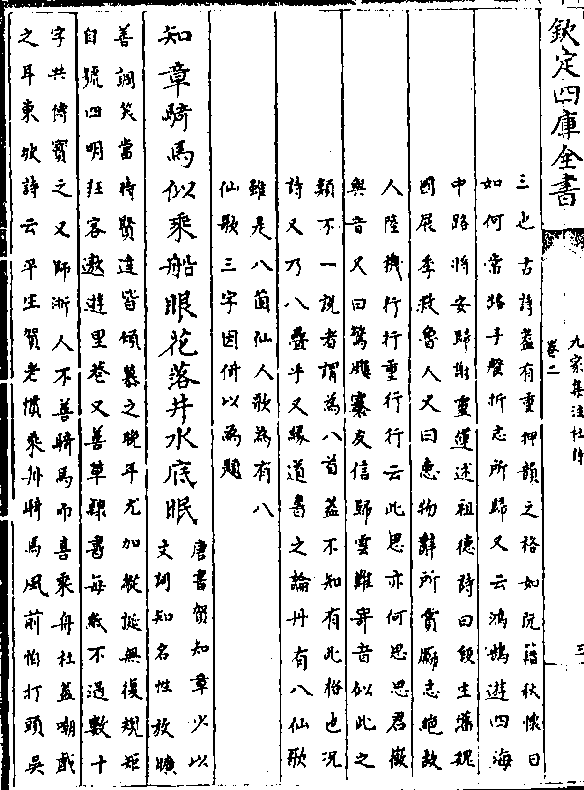 欽定四庫全書
九家集注杜詩
卷二
三
三也古詩蓋有重押韻之格如阮籍秋懷曰
如何當路子磬折忘所歸又云鴻鵠遊四海
中路將安歸謝靈運述祖德詩曰段生藩魏
國展季救魯人又曰惠物辭所賞勵志絶故
人陸機行行重行行云此思亦何思思君徽
與音又曰驚飈褰友信歸雲難寄音似此之
類不一說者謂為八首蓋不知有此格也况
詩又乃八疊乎又緣道書之論丹有八仙歌
雖是八箇仙人歌為有八
仙歌三字因併以為題
知章騎馬似乘船眼花落井水底眠
唐書賀知章少以
文詞知名性放曠
善調笑當時賢達皆傾慕之晚年尤加縱誕無復規矩
自號四明狂客遨遊里巷又善草隸書每紙不過數十
字共傳寶之又師浙人不善騎馬而喜乘舟杜蓋嘲戲
之耳東坡詩云平生賀老慣乘舟騎馬風前怕打頭吳